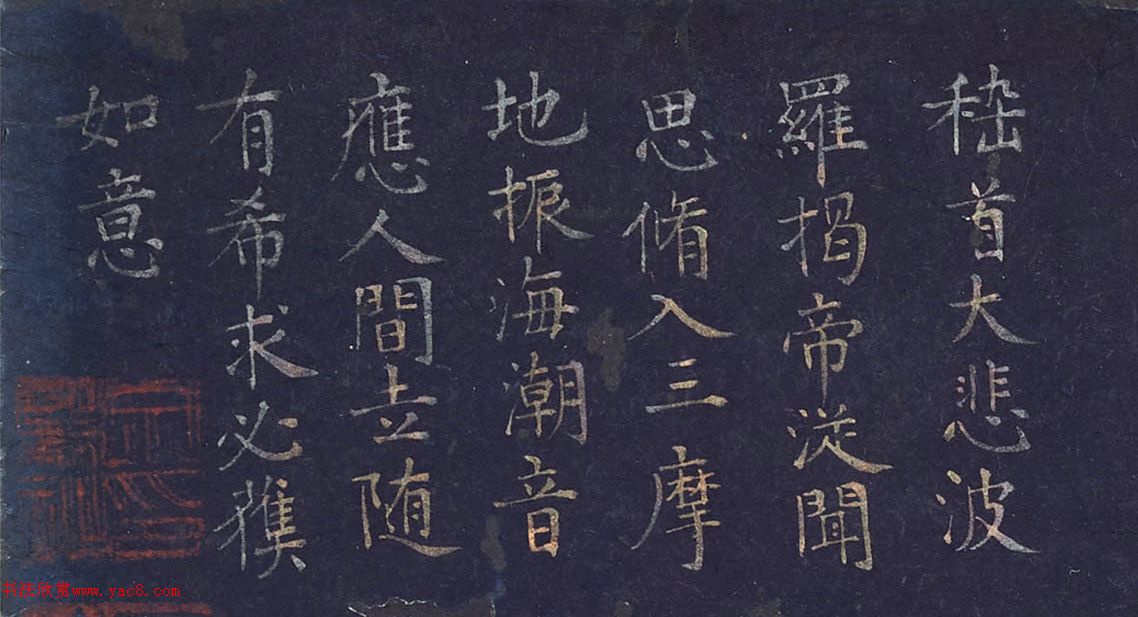 嵇首大悲波
羅揭帝従聞
思脩入三摩
地振海潮音
應人間去随
有希求必獲
如意
书法欣赏www.yac8.com